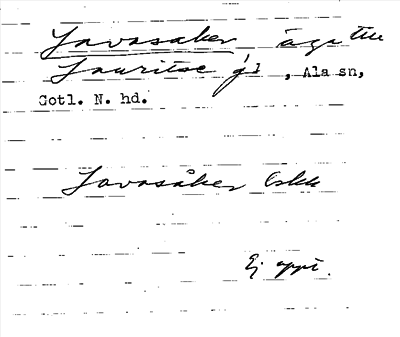 Lavasåker äga till
Lauritse gd, Ala sn,
Gotl. N. hd.
Lavasåker Eskk
Ej uppt.